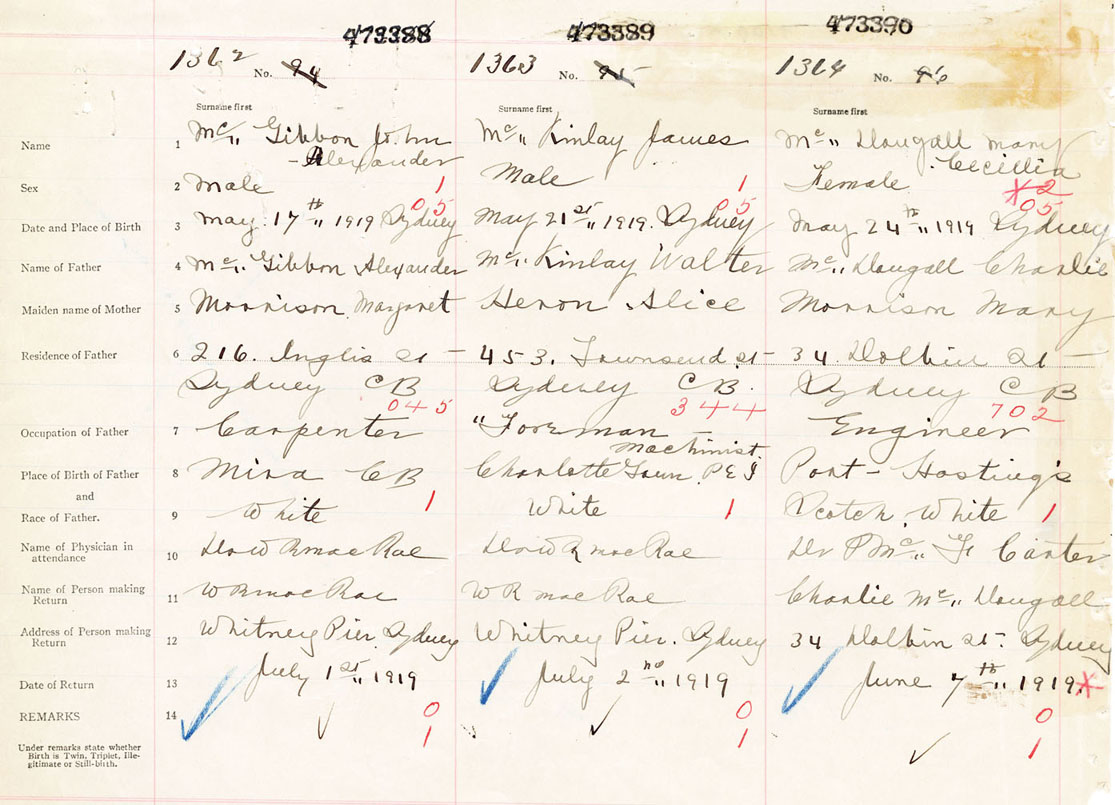 473388 473389 473390
1362 No. 94 1363 No. 95 1364 No. 96
Surname first Surname first Surname first
Name 1 Mc„ Gibbon John Mc„ Kinlay James Mc„ Dougall Mary
Alexander Cecillia
Sex 2 Male 1 Male 1 Female 2
05 05 05
Date and Place of Birth 3 May 17th„ 1919 Sydney May 21st„ 1919. Sydney May 24th„ 1919 Sydney
Name of Father 4 Mc„ Gibbon Alexander Mc„ Kinlay Walter Mc„ Dougall Charlie
Maiden name of Mother 5 Morrison Margaret Heron Alice Morrison Mary
Residence of Father 6 216. Inglis St — 453. Townsend St — 34 Dolbin St —
Sydney CB Sydney CB. Sydney CB
045 344 702
Occupation of Father 7 Carpenter "Foreman Engineer
Machinist
Place of Birth of Father 8 Mira CB Charlotte Town. P.E.I Port-Hasting's
and
Race of Father. 9 White 1 White 1 Scotch. White 1
Name of Physician in attendance 10 MacRae MacRae Dr P Mc„ F Carter
Name of Person making Return 11 W R MacRae W R MacRae Charlie Mc„ Dougall
Address of Person making Return 12 Whitney Pier. Sydney Whitney Pier. Sydney 34 Dolbin St. Sydney
Date of Return 13 July 1st„ 1919 July 2nd„ 1919 June 7th„ 1919.
REMARKS 14 0 0 0
1 1 1
Under remarks state whether
Birth is Twin, Triplet, Ille-
gitimate or Still-birth.